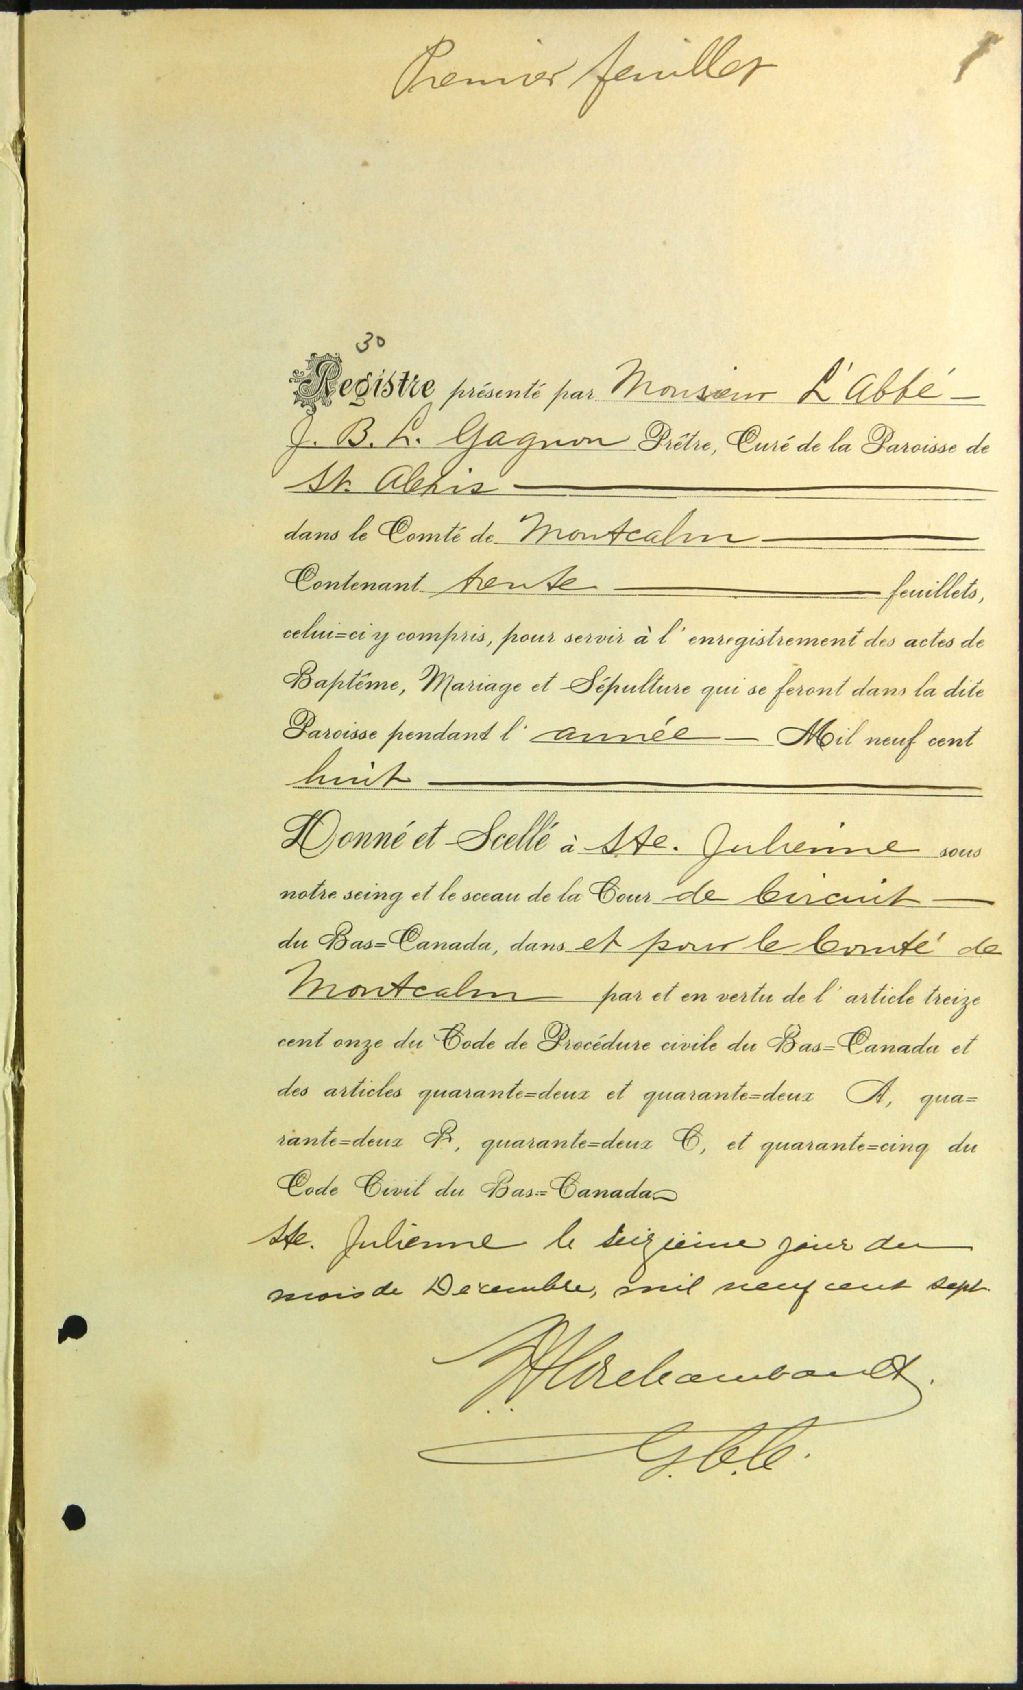 Premier feuillet
1
30
Registre présenté par Monsieur L'Abbé —
J. B. L. Gagnon Prêtre, Curé de la Paroisse de
St. Alexis —
dans le Comté de Montcalm —
Contenant trente — feuillets,
celui=ci y compris, pour servir à l'enregistrement des actes de
Baptême, Mariage et Sépulture qui se feront dans la dite
Paroisse pendant l'année — Mil neuf cent
huit —
Donné et Scellé à Ste. Julienne sous
notre seing et le sceau de la Cour de Circuit —
du Bas=Canada, dans et pour le Comté de
Montcalm par et en vertu de l'article treize
cent onze du Code de Procédure civile du Bas=Canada et
des articles quarante=deux et quarante=deux A, qua=
rante=deux B, quarante=deux C, et quarante=cinq du
Code Civil du Bas=Canada
Ste. Julienne le seizieme jour du
mois de Decembre, mil neuf cent sept.
Archambault
G.C.C.